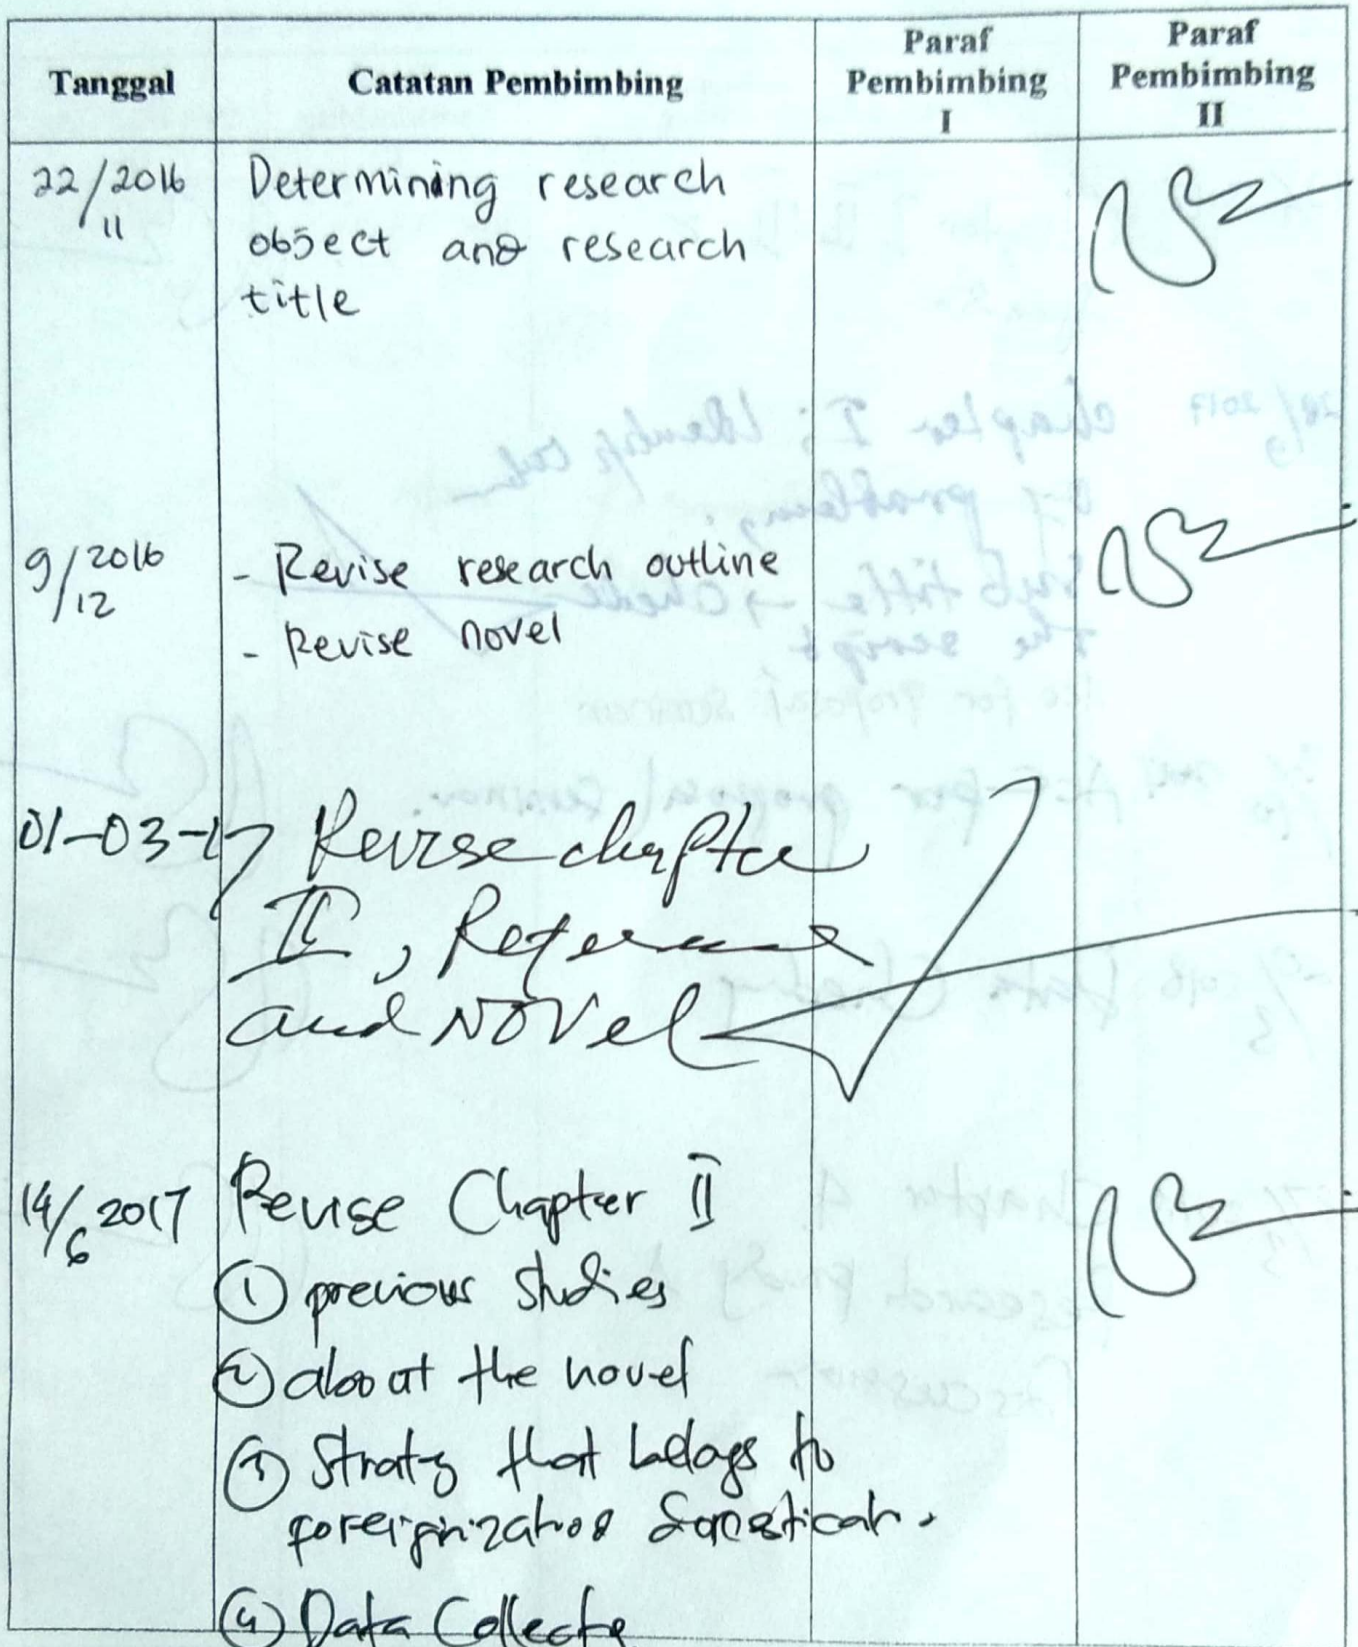 Tanggal
Catatan Pembimbing
Paraf
Pembimbing
I
Paraf
Pembimbing
II
22/2016
11
Determining research
object and research
title
9/2016
12
- Revise research outline
- Revise novel
01-03-17
Revise chapter
II, Reference
and Novel
14/6 2017
Revise Chapter II
① previous studies
② about the novel
③ Strategy that belongs to
foreignization
④ Data Collecte